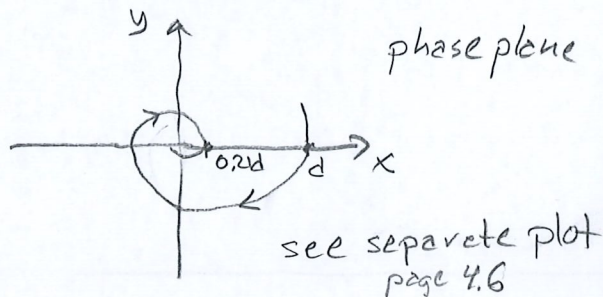 y
phase plane
0,21d
d
x
see separate plot
page 4.6